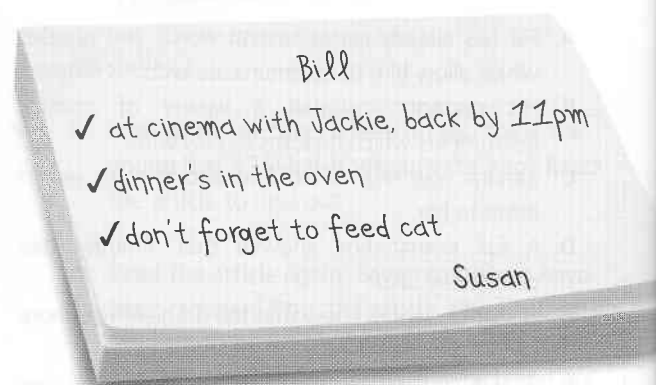 Bill
✓ at cinema with Jackie, back by 11pm
✓ dinner's in the oven
✓ don't forget to feed cat
Susan